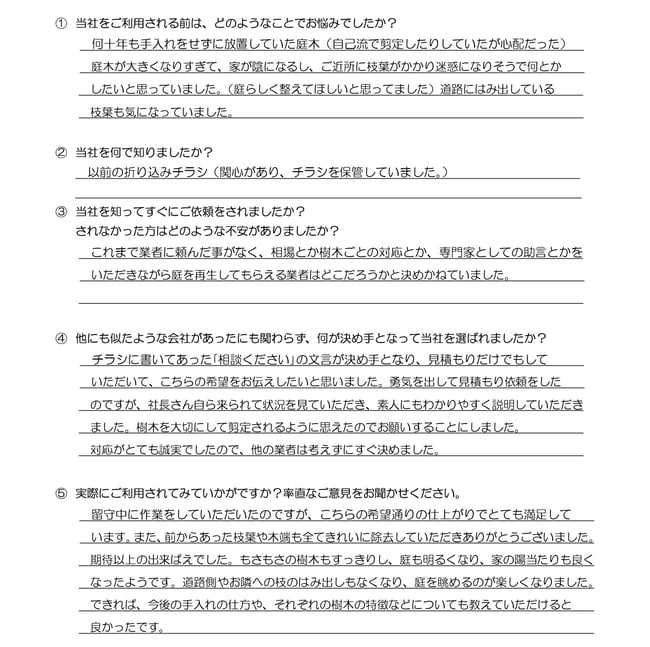 ① 当社をご利用される前は、どのようなことでお悩みでしたか？
何十年も手入れをせずに放置していた庭木（自己流で剪定したりしていたが心配だった）
庭木が大きくなりすぎて、家が陰になるし、ご近所に枝葉がかかり迷惑になりそうで何とか
したいと思っていました。（庭らしく整えてほしいと思ってました）道路にはみ出している
枝葉も気になっていました。
② 当社を何で知りましたか？
以前の折り込みチラシ（関心があり、チラシを保管していました。）
③ 当社を知ってすぐにご依頼をされましたか？
されなかった方はどのような不安がありましたか？
これまで業者に頼んだ事がなく、相場とか樹木ごとの対応とか、専門家としての助言とかを
いただきながら庭を再生してもらえる業者はどこだろうかと決めかねていました。
④ 他にも似たような会社があったにも関わらず、何が決め手となって当社を選ばれましたか？
チラシに書いてあった「相談ください」の文言が決め手となり、見積もりだけでもして
いただいて、こちらの希望をお伝えしたいと思いました。勇気を出して見積もり依頼をした
のですが、社長さん自ら来られて状況を見ていただき、素人にもわかりやすく説明していただき
ました。樹木を大切にして剪定されるように思えたのでお願いすることにしました。
対応がとても誠実でしたので、他の業者は考えずにすぐ決めました。
⑤ 実際にご利用されてみていかがですか？率直なご意見をお聞かせください。
留守中に作業をしていただいたのですが、こちらの希望通りの仕上がりでとても満足して
います。また、前からあった枝葉や木端も全てきれいに除去していただきありがとうございました。
期待以上の出来ばえでした。もさもさの樹木もすっきりし、庭も明るくなり、家の陽当たりも良く
なったようです。道路側やお隣への枝のはみ出しもなくなり、庭を眺めるのが楽しくなりました。
できれば、今後の手入れの仕方や、それぞれの樹木の特徴などについても教えていただけると
良かったです。